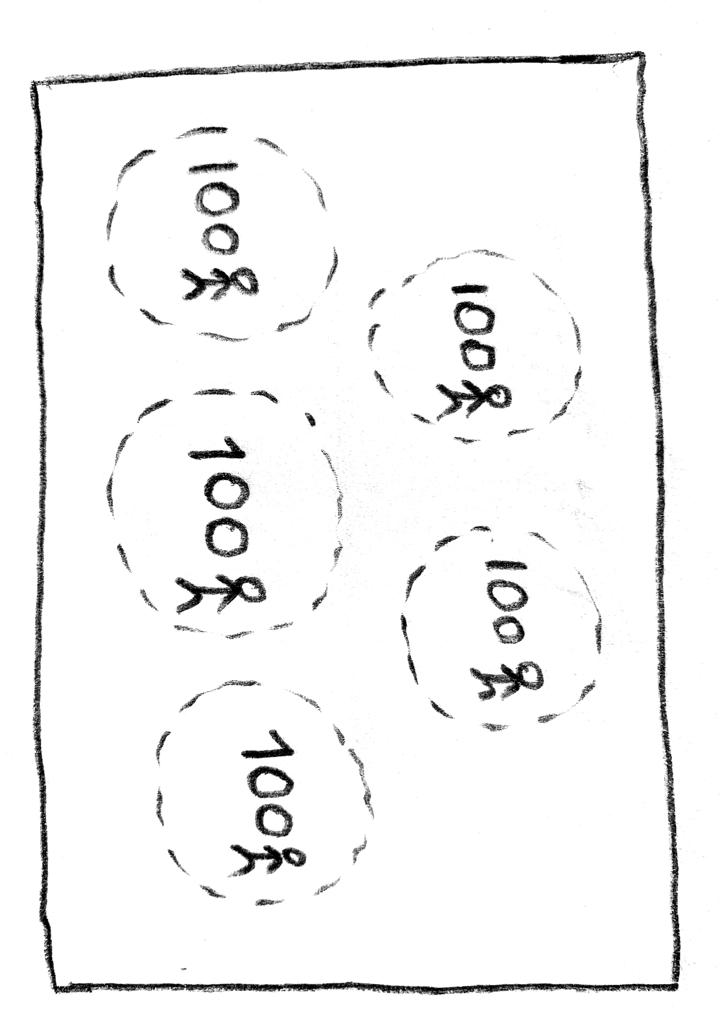 100
100
100
100
100